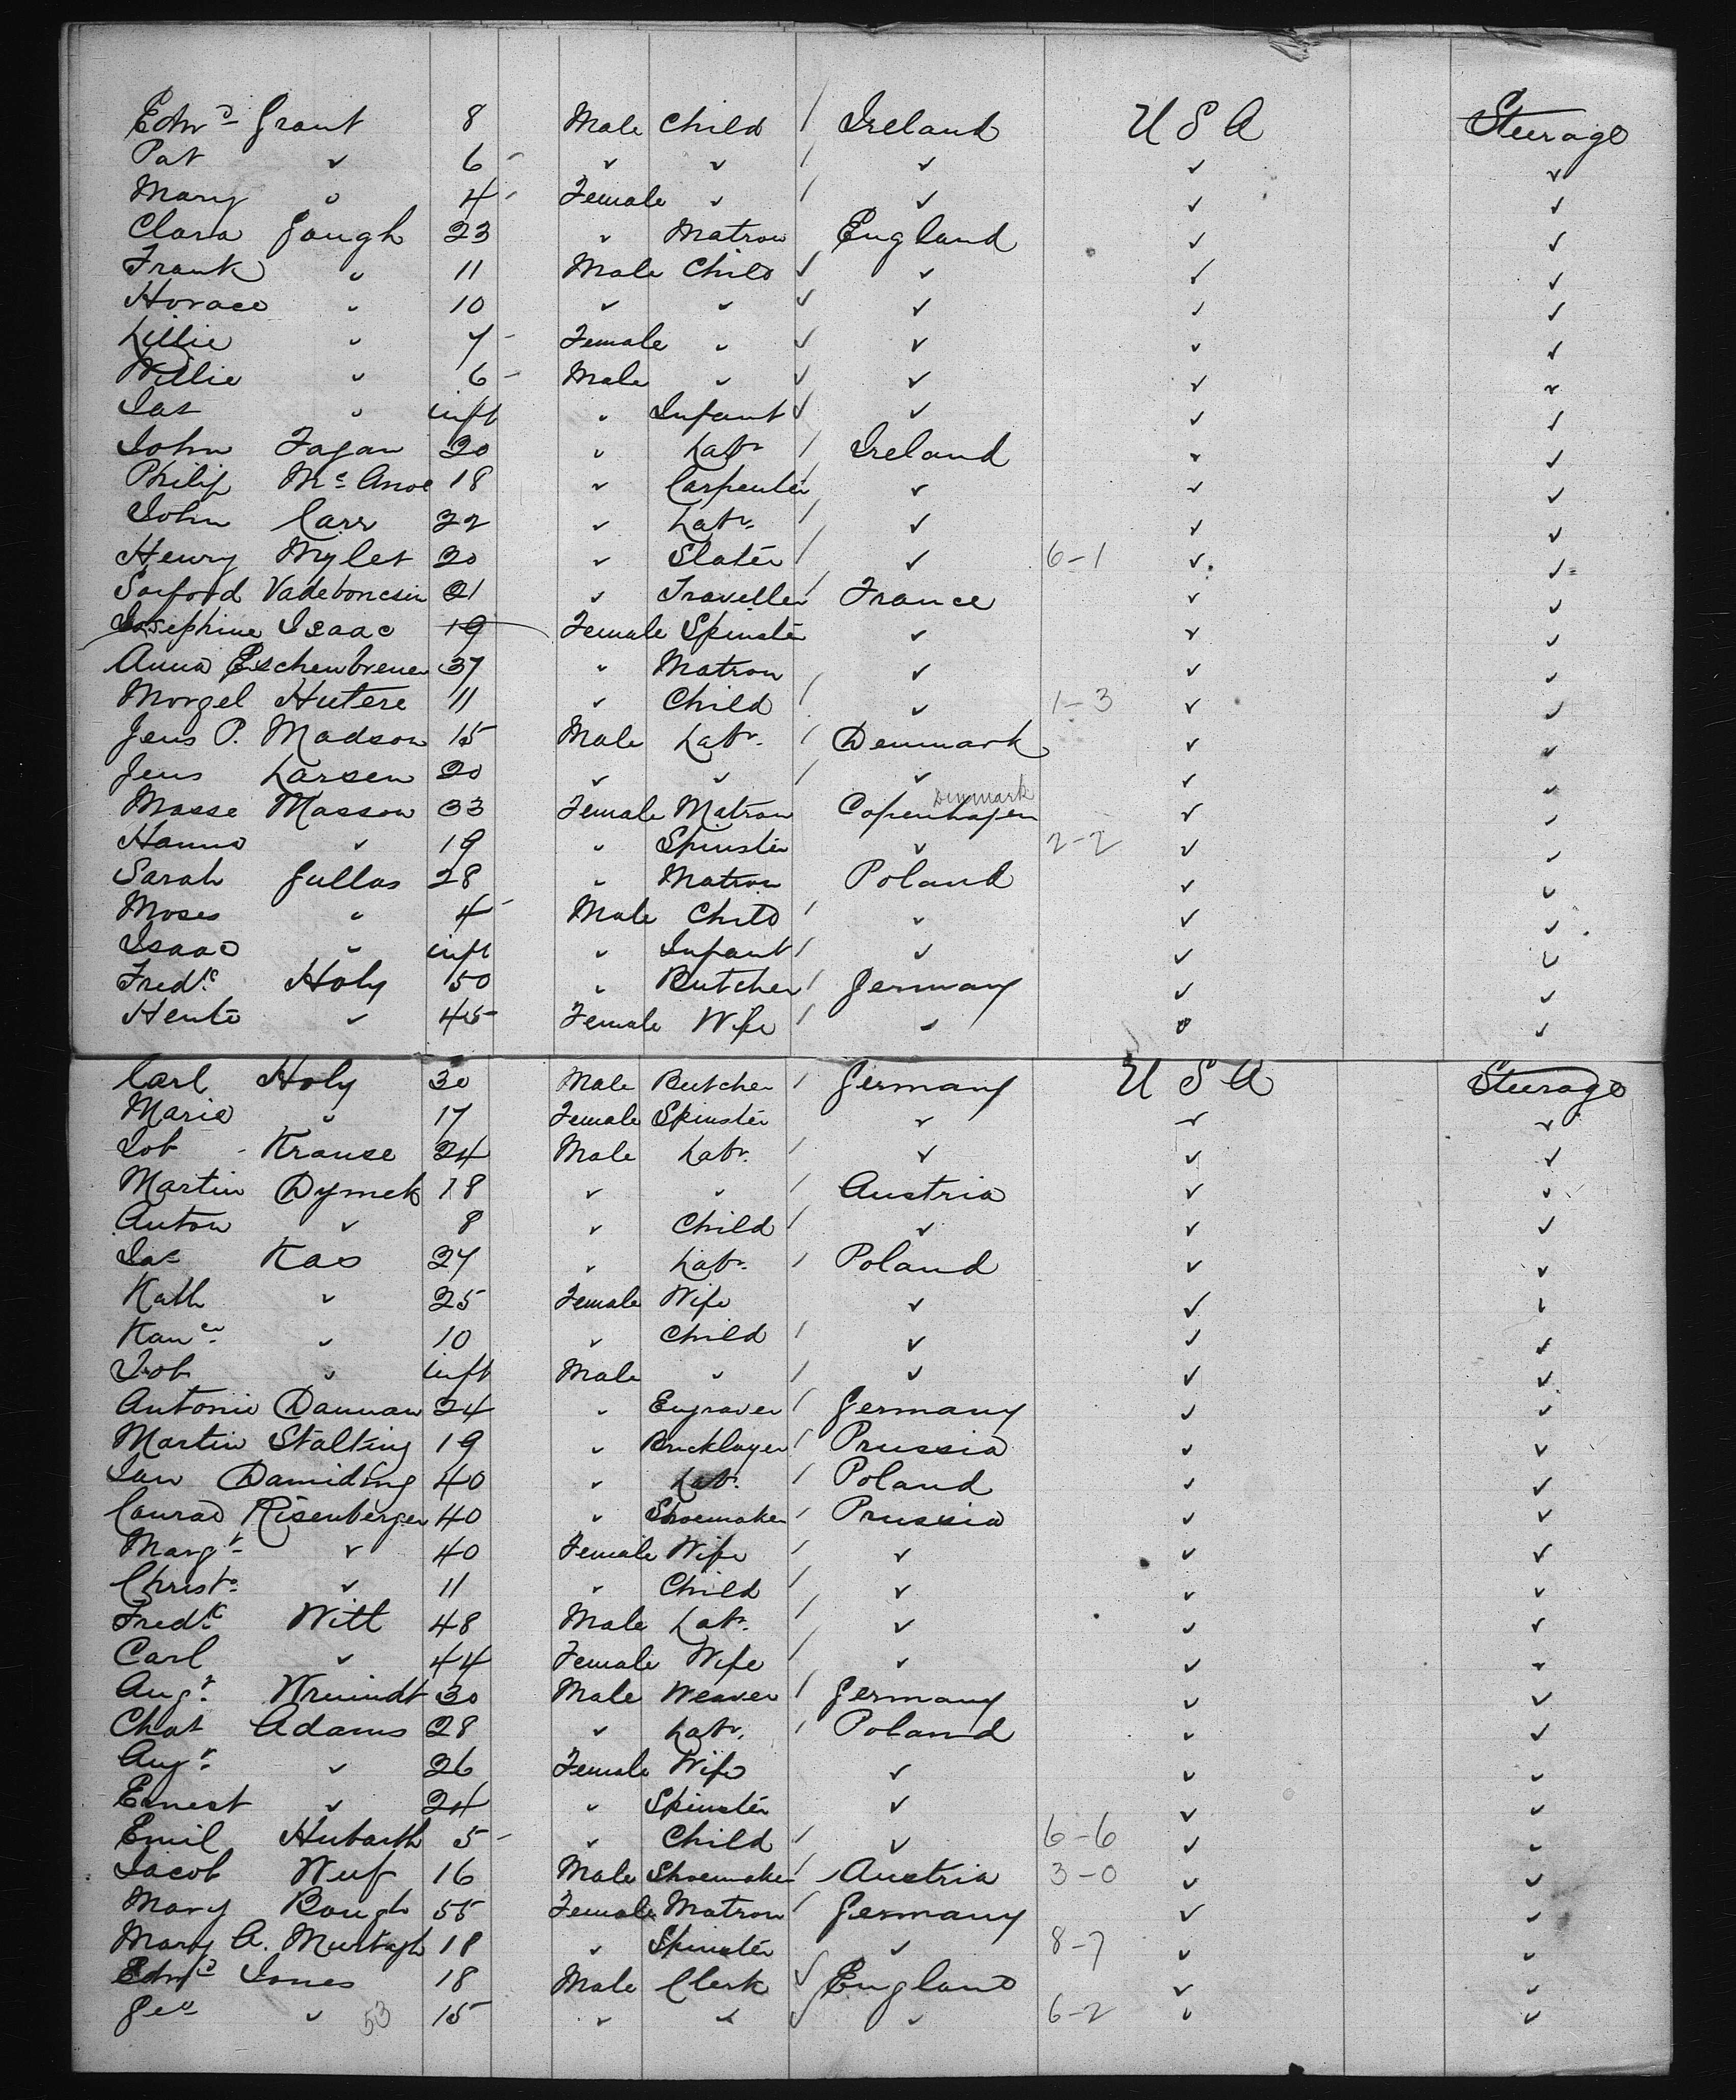 Edwd Grant 8 Male Child / Ireland U S A Steerage
Pat ✓ 6 - ✓ ✓ / ✓ ✓ ✓
Mary ✓ 4 - Female ✓ / ✓ ✓ ✓
Clara Gough 23 ✓ Matron England ✓ ✓
Frank ✓ 11 Male Child ✓ ✓ ✓ ✓
Horace ✓ 10 ✓ ✓ ✓ ✓ ✓ ✓
Lillie ✓ 7 - Female ✓ ✓ ✓ ✓ ✓
Willie ✓ 6 - Male ✓ ✓ ✓ ✓ ✓
Jas ✓ inft ✓ Infant ✓ ✓ ✓ ✓
John Fagan 20 ✓ Labr / Ireland ✓ ✓
Philip Mc 18 ✓ Carpenter / ✓ ✓ ✓
John Carr 22 ✓ Labr. / ✓ ✓ ✓
Henry Myles 20 ✓ Slater / ✓ 6-1 ✓ ✓
Vadeboncsin 21 ✓ Traveller / France ✓ ✓
Josephine Isaac 19 Female Spinster ✓ ✓ ✓
Anna Eschenbrener 37 ✓ Matron ✓ ✓ ✓
Morgel Hutere 11 ✓ Child / ✓ 1-3 ✓ ✓
Jens P. Madson 15 Male Labr. / Denmark ✓ ✓
Jens Larsen 20 ✓ ✓ / ✓ ✓ ✓
Masse Masson 33 Female Matron Copenhagen Denmark ✓ ✓
Hanna ✓ 19 ✓ Spinster ✓ 2-2 ✓ ✓
Sarah Gullas 28 ✓ Matron Poland ✓ ✓
Moses ✓ 4 - Male Child / ✓ ✓ ✓
Isaac ✓ inft ✓ Infant / ✓ ✓ ✓
Fredk. Holy 50 ✓ Butcher / Germany ✓ ✓
Hente ✓ 45 Female Wife / ✓ ✓ ✓
Carl Holy 30 Male Butcher / Germany U S A Steerage
Marie ✓ 17 Female Spinster ✓ ✓ ✓
Job Krause 24 Male Labr. / ✓ ✓ ✓
Martin Dymek 18 ✓ ✓ / Austria ✓ ✓
Anton ✓ 8 ✓ Child / ✓ ✓ ✓
Jas Kas 27 ✓ Labr. / Poland ✓ ✓
Kath ✓ 25 Female Wife ✓ ✓ ✓
✓ 10 ✓ Child / ✓ ✓ ✓
Job ✓ inft Male ✓ / ✓ ✓ ✓
Antonie Dannan 24 ✓ Engraver / Germany ✓ ✓
Martin Stalting 19 ✓ Bricklayer / Prussia ✓ ✓
Jan Damiding 40 ✓ Labr. / Poland ✓ ✓
Conrad Risenberger 40 ✓ Shoemaker / Prussia ✓ ✓
Margt ✓ 40 Female Wife / ✓ ✓ ✓
Christ. ✓ 11 ✓ Child / ✓ ✓ ✓
Fredk Witt 48 Male Labr. / ✓ ✓ ✓
Carl ✓ 44 Female Wife / ✓ ✓ ✓
Augt. 30 Male Weaver / Germany ✓ ✓
Chas Adams 28 ✓ Labr. / Poland ✓ ✓
Augt. ✓ 26 Female Wife ✓ ✓ ✓
Ernest ✓ 24 ✓ Spinster ✓ ✓ ✓
Emil Hubarth 5 - ✓ Child / ✓ 6-6 ✓ ✓
Jacob Wuf 16 Male Shoemaker / Austria 3-0 ✓ ✓
Mary Bough 55 Female Matron / Germany ✓ ✓
Mary A. Murtagh 18 ✓ Spinster ✓ 8-7 ✓ ✓
Edwd Jones 18 Male Clerk ✓ England ✓ ✓
Geo ✓ 53 15 ✓ ✓ ✓ ✓ 6-2 ✓ ✓